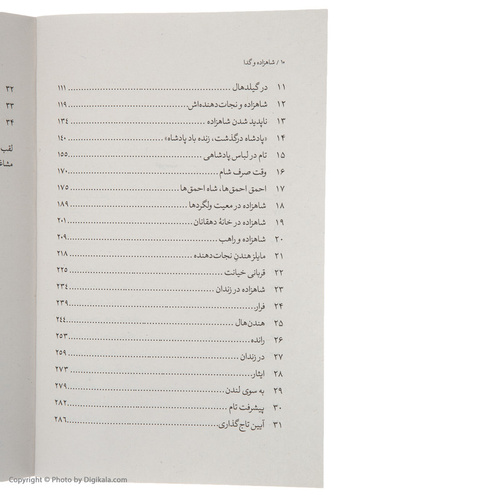 ۱۰ / شاهزاده و گدا
۱۱ در گیلدهال ... ۱۱۱
۱۲ شاهزاده و نجات‌دهنده‌اش ... ۱۱۹
۱۳ ناپدید شدن شاهزاده ... ۱۳۴
۱۴ «پادشاه درگذشت، زنده باد پادشاه» ... ۱۴۰
۱۵ تام در لباس پادشاهی ... ۱۵۵
۱۶ وقت صرف شام ... ۱۷۰
۱۷ احمق احمق‌ها، شاه احمق‌ها ... ۱۷۵
۱۸ شاهزاده در معیت ولگردها ... ۱۸۹
۱۹ شاهزاده در خانهٔ دهقانان ... ۲۰۱
۲۰ شاهزاده و راهب ... ۲۰۹
۲۱ مایلز هندن نجات‌دهنده ... ۲۱۸
۲۲ قربانی خیانت ... ۲۲۵
۲۳ شاهزاده در زندان ... ۲۳۴
۲۴ فرار ... ۲۳۹
۲۵ هندن‌هال ... ۲۴۴
۲۶ رانده ... ۲۵۳
۲۷ در زندان ... ۲۵۹
۲۸ ایثار ... ۲۷۳
۲۹ به سوی لندن ... ۲۷۹
۳۰ پیشرفت تام ... ۲۸۲
۳۱ آیین تاج‌گذاری ... ۲۸۶
۳۲
۳۳
۳۴
لقب
Copyright © Photo by Digikala.com